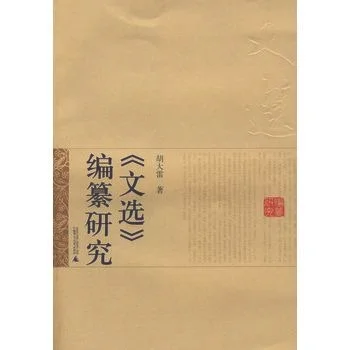 文選
《文选》
编纂研究
胡大雷 著